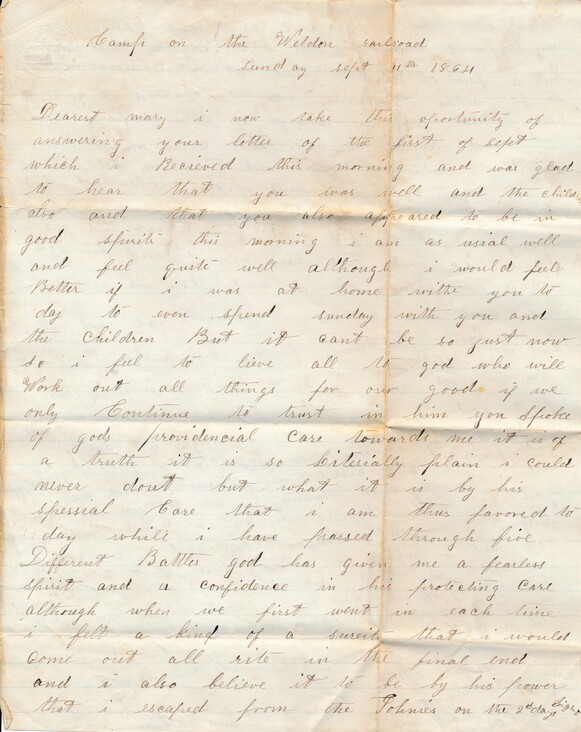 Camp on the Weldon railroad
sunday sept 11th 1864
Dearest mary i now take this oportunity of
answering your letter of the first of sept
which i Recieved this morning and was glad
to hear that you was well and the children
also and that you also appeared to be in
good spirits this morning i am as usial well
and feel quite well although i would feel
Better if i was at home withe you to
day to even spend sunday with you and
the children But it cant be so just now
so i feel to lieve all to god who will
Work out all things for our good if we
only Continue to trust in him you spoke
of gods providencial Care towards me it is of
a truth it is so Literially plain i could
never dout but what it is by his
spessial Care that i am thus favored to
day while i have passed through five
Different Battles god has given me a fearless
spirit and a confidence in his protecting Care
although when we first went in each time
i felt a kind of a that i would
Come out all rite in the final end
and i also believe it to be by his power
that i escaped from the Johnies on the 2d day